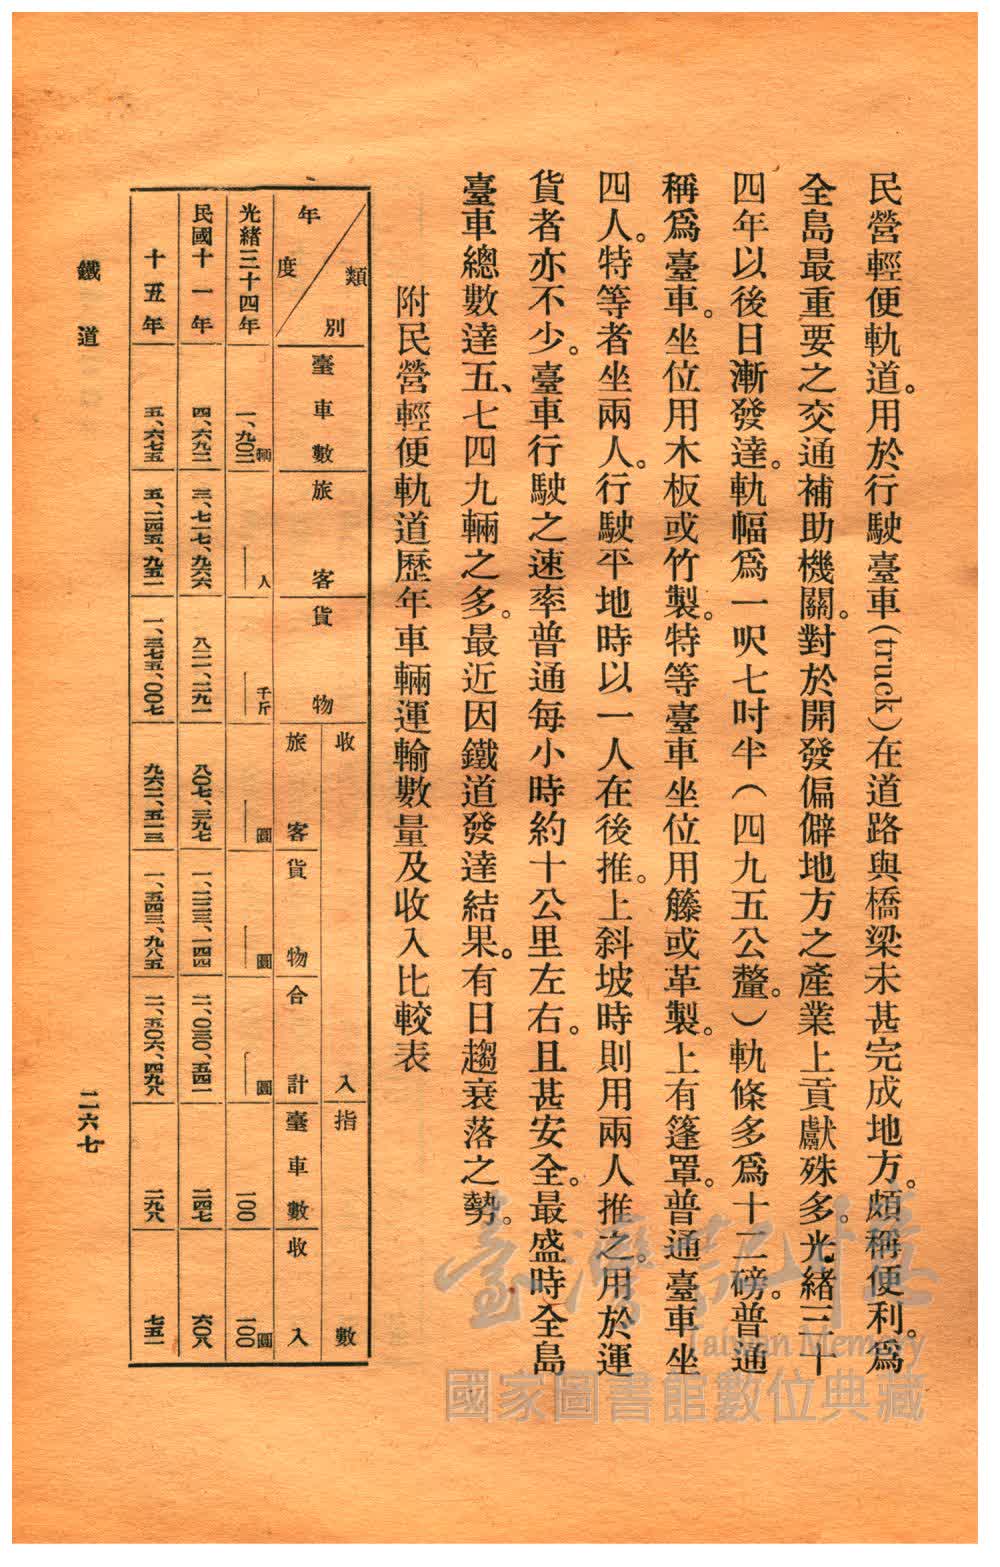 民營輕便軌道。用於行駛臺車(truck)在道路與橋梁未甚完成地方。頗稱便利。爲
全島最重要之交通補助機關。對於開發偏僻地方之產業上貢獻殊多。光緒三十
四年以後日漸發達。軌幅爲一呎七吋半(四九五公釐。)軌條多爲十二磅。普通
稱爲臺車。坐位用木板或竹製。特等臺車坐位用籐或革製。上有篷罩。普通臺車坐
四人。特等者坐兩人。行駛平地時以一人在後推。上斜坡時則用兩人推之。用於運
貨者亦不少。臺車行駛之速率普通每小時約十公里左右。且甚安全。最盛時全島
臺車總數達五、七四九輛之多。最近因鐵道發達結果。有日趨衰落之勢。
附民營輕便軌道歷年車輛運輸數量及收入比較表
類別 年度 臺車數 旅客 貨物 收入 旅客 貨物 合計 指數 臺車數 收入
光緒三十四年 一、九〇二輛 ——人 ——千斤 ——圓 ——圓 ——圓 一〇〇 一〇〇圓
民國十一年 四、六九二 三、七一七、九六六 八二一、二九一 八〇七、三九七 一、二二三、一四四 二、〇三〇、五四一 二四七 六〇八
十五年 五、六七五 五、二四五、九五一 一、三七五、〇〇七 九六二、五一三 一、五四三、九八五 二、五〇六、四九八 二九八 七五一
鐵道 二六七
臺灣記憶
Taiwan Memory
國家圖書館數位典藏